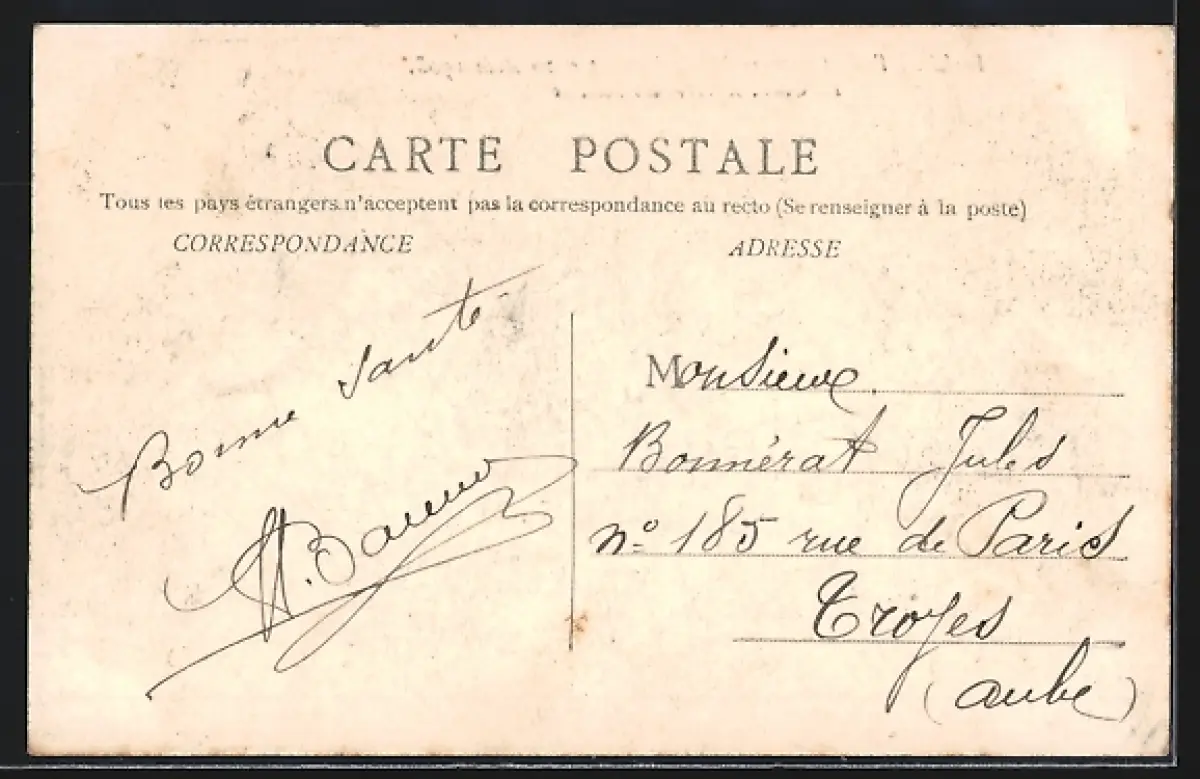 CARTE POSTALE
Tous les pays étrangers n'acceptent pas la correspondance au recto (Se renseigner à la poste)
CORRESPONDANCE
ADRESSE
Bonne Santé
Monsieur
Bonnérat Jules
n° 185 rue de Paris
Troyes
(Aube)